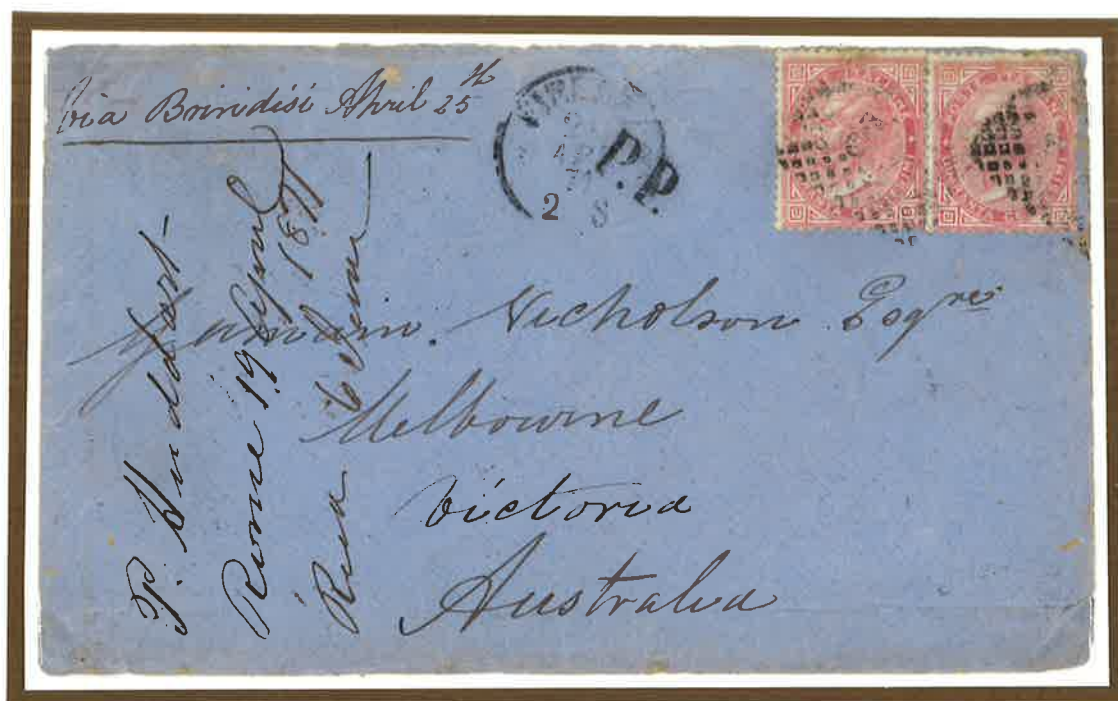 Via Brindisi April 25th
P.P.
2
8
Nicholson Esqre
Melbourne
Victoria
Australia
P. Huddart
Rome 19 April
1871
6 June